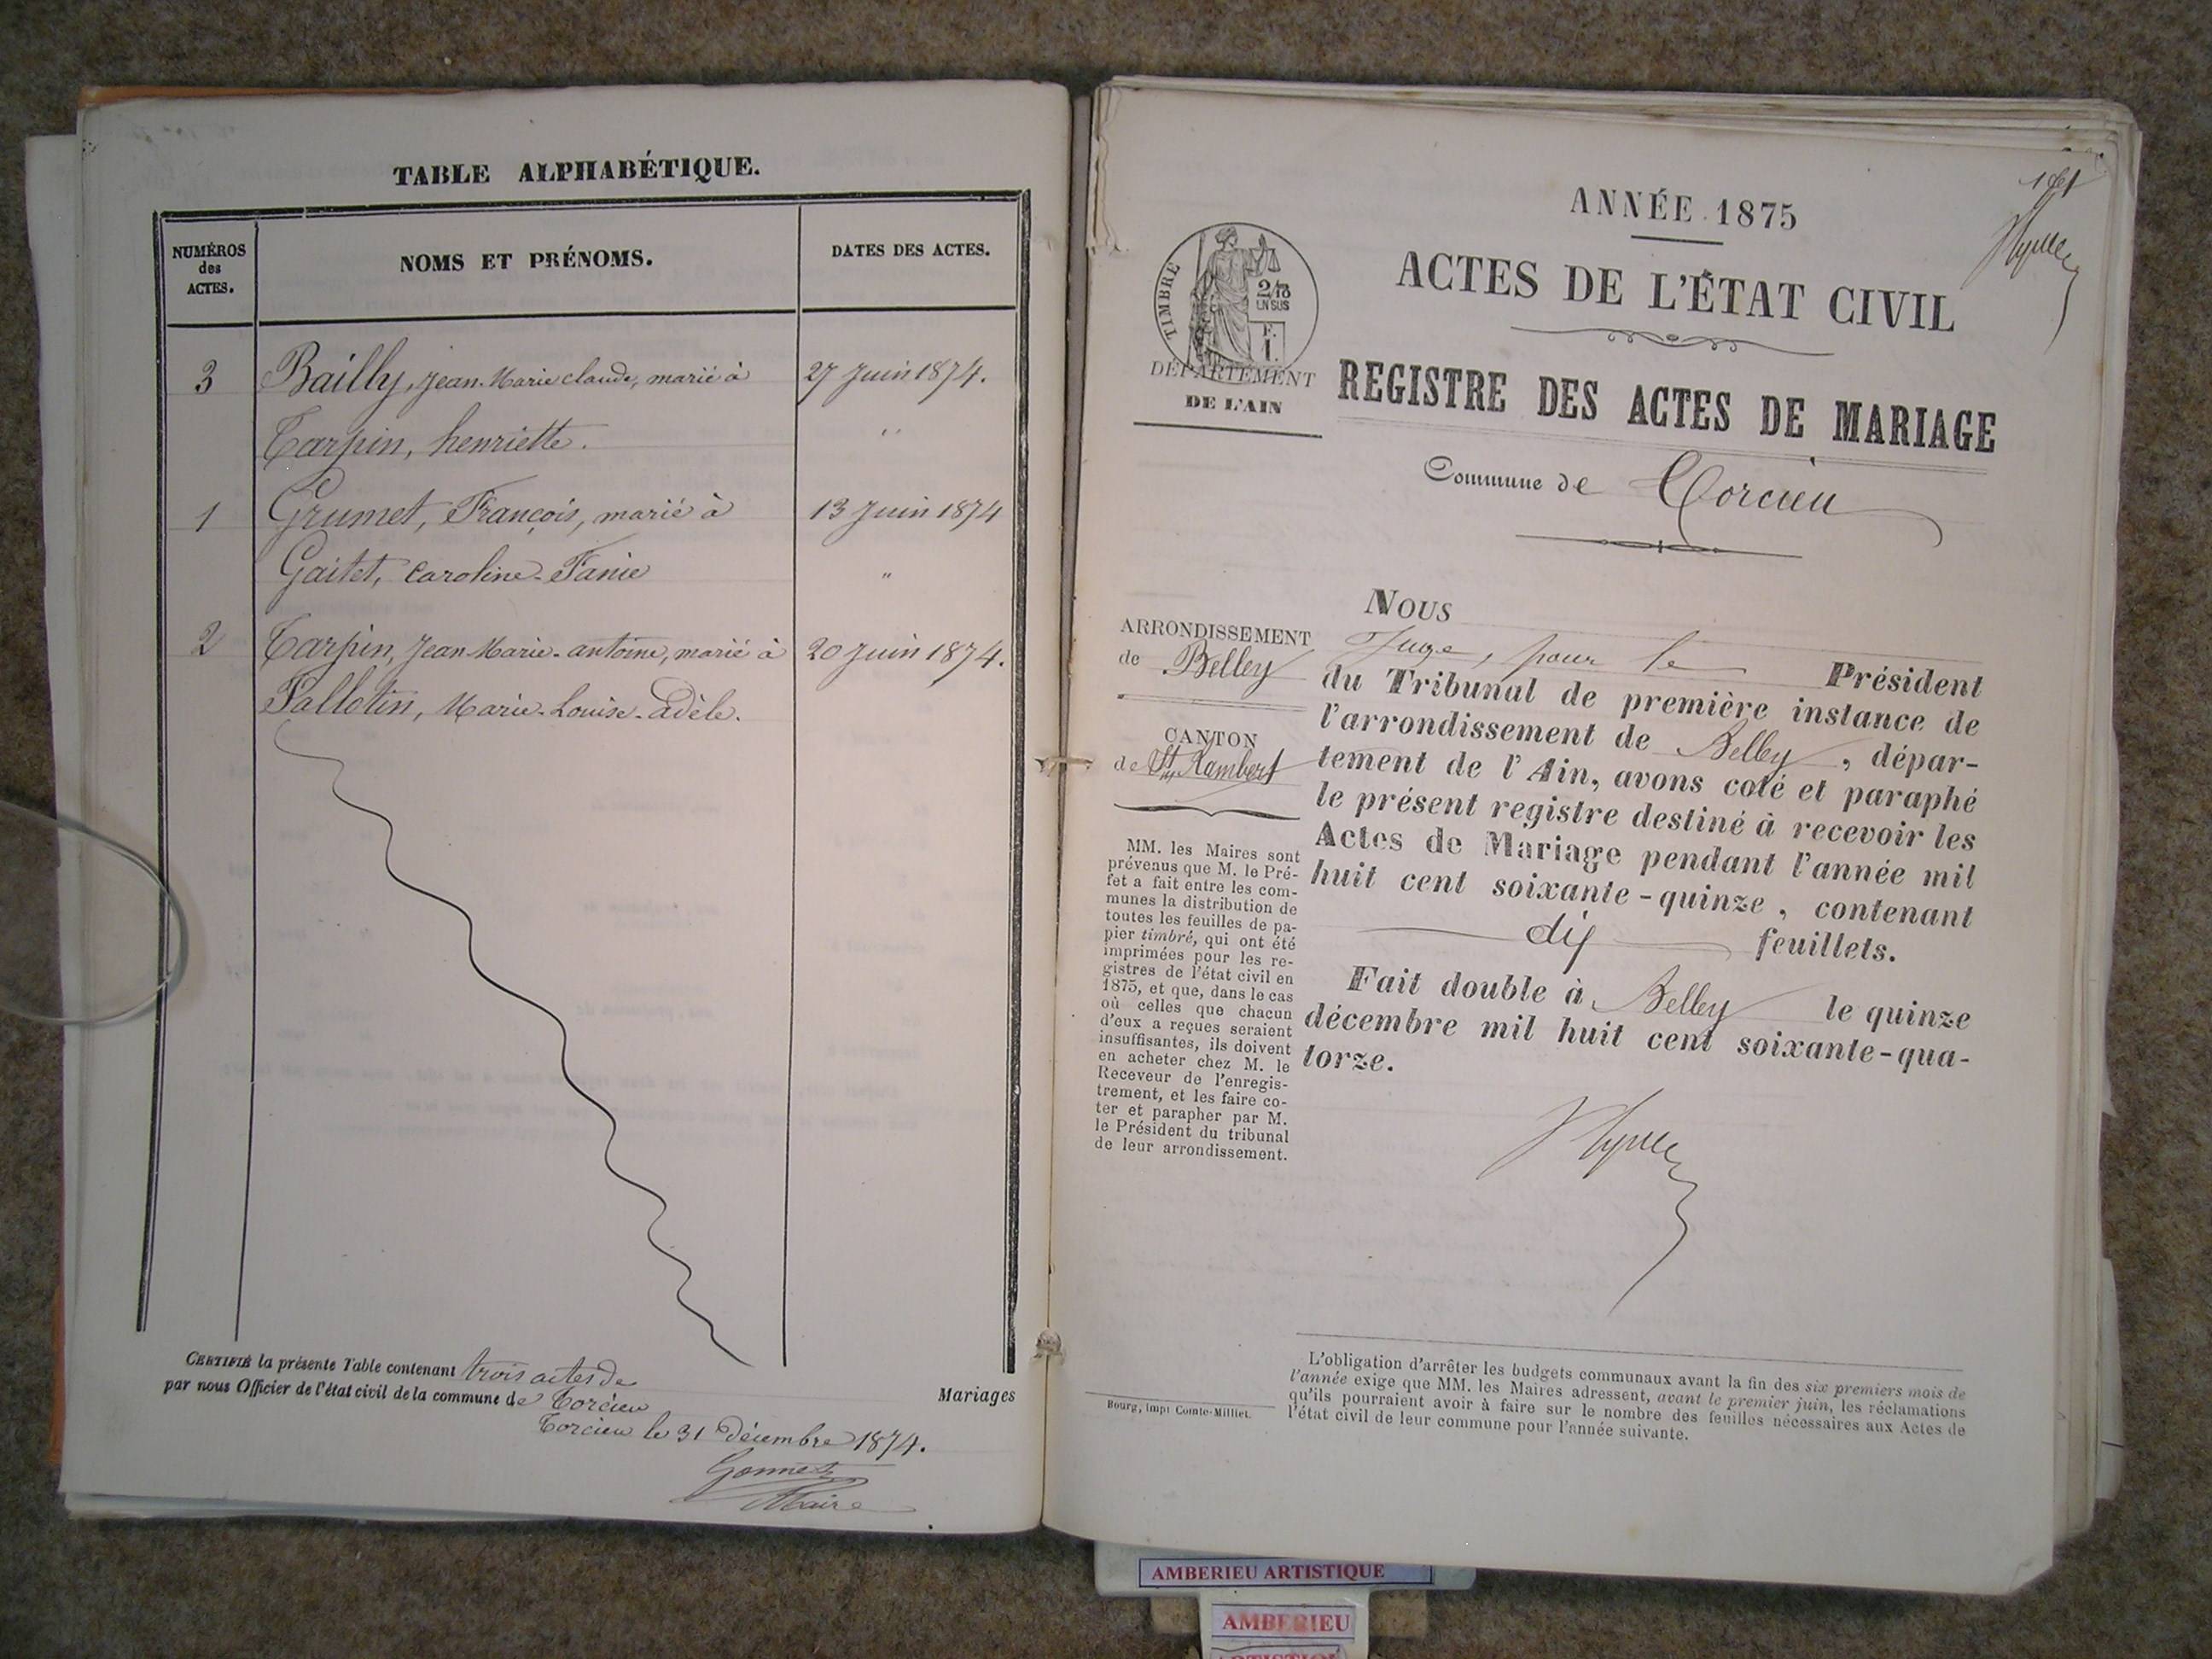 TABLE ALPHABÉTIQUE.
NUMÉROS
des
ACTES.
NOMS ET PRÉNOMS.
DATES DES ACTES.
3 Bailly, Jean-Marie claude, marié à 27 Juin 1874.
Tarpin, henriette. "
1 Grumet, François, marié à 13 Juin 1874
Gaitet, Caroline-Fanie "
2 Tarpin, Jean Marie-antoine, marié à 20 Juin 1874.
Pallotin, Marie-Louise-adèle.
CERTIFIÉ la présente Table contenant trois actes de Mariages
par nous Officier de l'état civil de la commune de Torcieu
Torcieu le 31 Décembre 1874.
Gonnet
Maire
1er
ANNÉE 1875
ACTES DE L'ÉTAT CIVIL
TIMBRE
2/10
EN SUS
DÉPARTEMENT
DE L'AIN
REGISTRE DES ACTES DE MARIAGE
Commune de Torcieu
ARRONDISSEMENT
de Belley
CANTON
de St Rambert
MM. les Maires sont
prévenus que M. le Pré-
fet a fait entre les com-
munes la distribution de
toutes les feuilles de pa-
pier timbré, qui ont été
imprimées pour les re-
gistres de l'état civil en
1875, et que, dans le cas
où celles que chacun
d'eux a reçues seraient
insuffisantes, ils doivent
en acheter chez M. le
Receveur de l'enregis-
trement, et les faire co-
ter et parapher par M.
le Président du tribunal
de leur arrondissement.
NOUS
Juge, pour le Président
du Tribunal de première instance de
l'arrondissement de Belley, dépar-
tement de l'Ain, avons coté et paraphé
le présent registre destiné à recevoir les
Actes de Mariage pendant l'année mil
huit cent soixante-quinze, contenant
dix feuillets.
Fait double à Belley le quinze
décembre mil huit cent soixante-qua-
torze.
L'obligation d'arrêter les budgets communaux avant la fin des six premiers mois de
l'année exige que MM. les Maires adressent, avant le premier juin, les réclamations
qu'ils pourraient avoir à faire sur le nombre des feuilles nécessaires aux Actes de
l'état civil de leur commune pour l'année suivante.
Bourg, Imp. Comte-Milliet.
AMBERIEU ARTISTIQUE
AMBERIEU
ARTISTIQUE